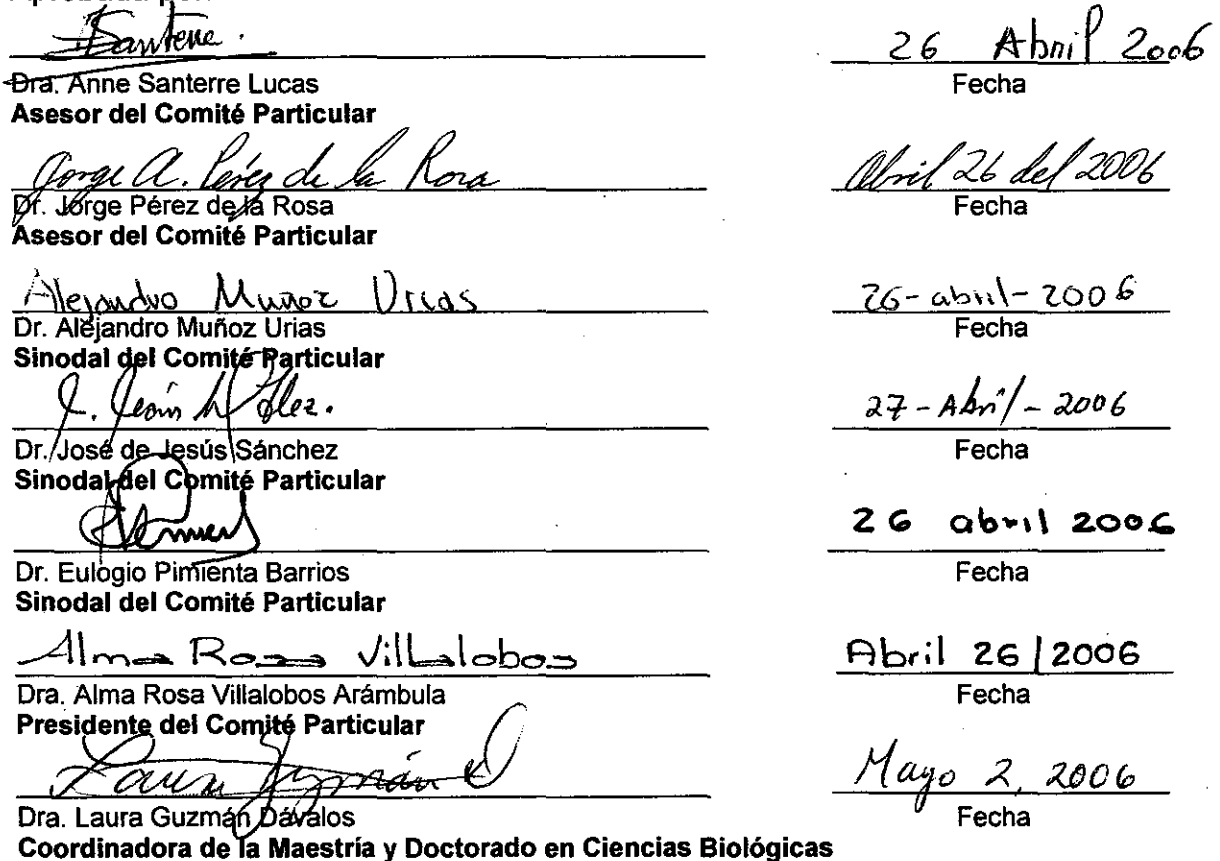 Aprobada por:
Santerre. 26 Abril 2006
Dra. Anne Santerre Lucas Fecha
Asesor del Comité Particular
Jorge A. Pérez de la Rosa Abril 26 del 2006
Dr. Jorge Pérez de la Rosa Fecha
Asesor del Comité Particular
Alejandro Muñoz Urias 26-abril-2006
Dr. Alejandro Muñoz Urias Fecha
Sinodal del Comité Particular
J. Jesús 27-Abril-2006
Dr. José de Jesús Sánchez Fecha
Sinodal del Comité Particular
26 abril 2006
Dr. Eulogio Pimienta Barrios Fecha
Sinodal del Comité Particular
Alma Rosa Villalobos Abril 26/2006
Dra. Alma Rosa Villalobos Arámbula Fecha
Presidente del Comité Particular
Laura Guzmán D Mayo 2, 2006
Dra. Laura Guzmán Dávalos Fecha
Coordinadora de la Maestría y Doctorado en Ciencias Biológicas